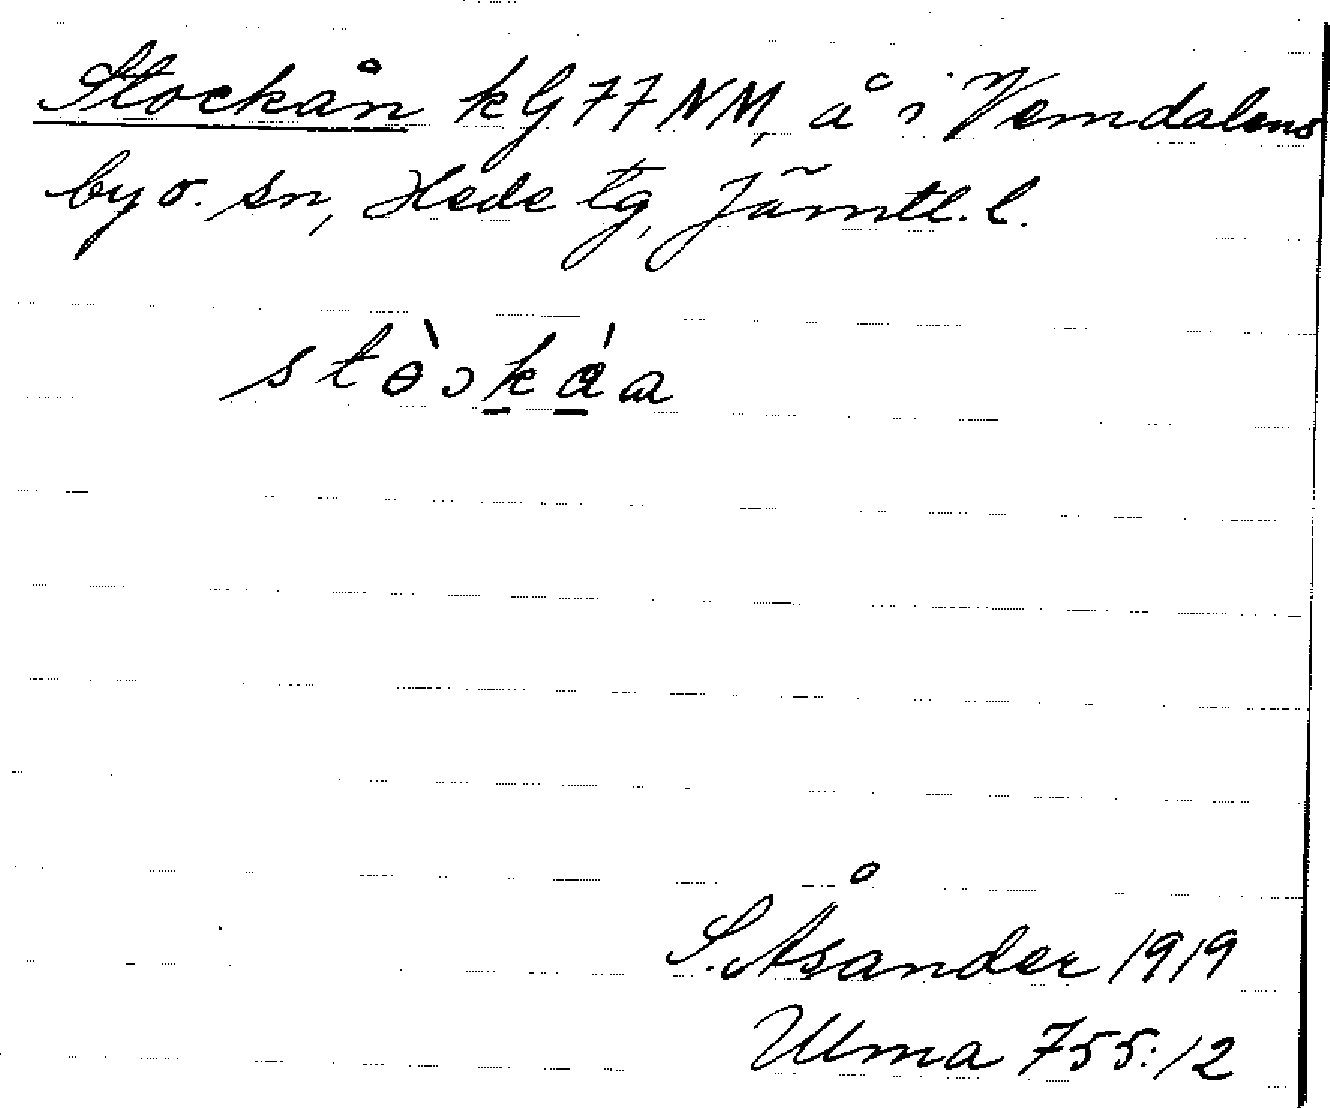 Stockån kG77NM, å i Vemdalens
by o. sn, Hede tg, Jämtl. l.
stɵ̀ɔkáa
S. Åsander 1919
Ulma 755:12